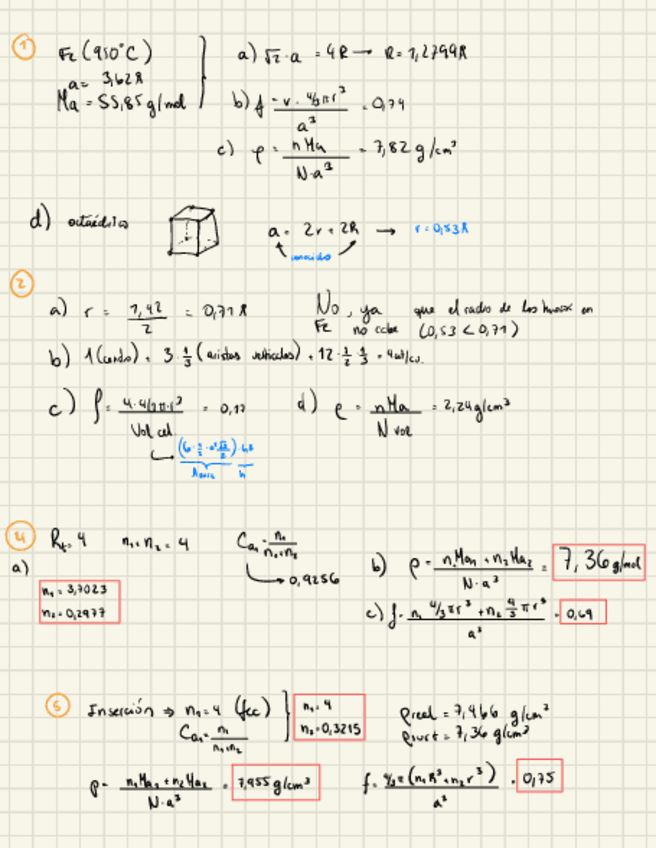 1
Fe (950°C)
a = 3,62Å
Ma = 55,85 g/mol
a) √2·a = 4R → R = 1,2799Å
b) f = v · 4/3πr³ / a³ = 0,74
c) ρ = nMa / N·a³ = 7,82 g/cm³
d) octaédrico
a = 2r + 2R → r = 0,53Å
conocido
2
a) r = 1,42 / 2 = 0,71 Å
No, ya que el radio de los huecos en
Fe no cabe (0,53 < 0,71)
b) 1 (centro) + 3 · 1/3 (aristas verticales) + 12 · 1/2 · 1/3 = 4at/cu.
c) f = 4·4/3π·r³ / Vol cel. = 0,17
d) ρ = nMa / N vol = 2,24g/cm³
4
Rt = 4
n₁+n₂ = 4
Ca₁ = n₁ / n₁+n₂
→ 0,9256
a)
n₁ = 3,7023
n₂ = 0,2977
b) ρ = n₁Ma₁ + n₂Ma₂ / N·a³ = 7,36 g/mol
c) f = n₁ 4/3πr³ + n₂ 4/3 πr³ / a³ = 0,69
5
Inserción ⇒ n₁ = 4 (fcc)
Ca₁ = n₁ / n₁+n₂
n₁ = 4
n₂ = 0,3215
ρreal = 7,466 g/cm³
ρsust = 7,36 g/cm³
ρ = n₁Ma₁ + n₂Ma₂ / N·a³ = 7,955 g/cm³
f = 4/3π (n₁R³ + n₂r³) / a³ = 0,75